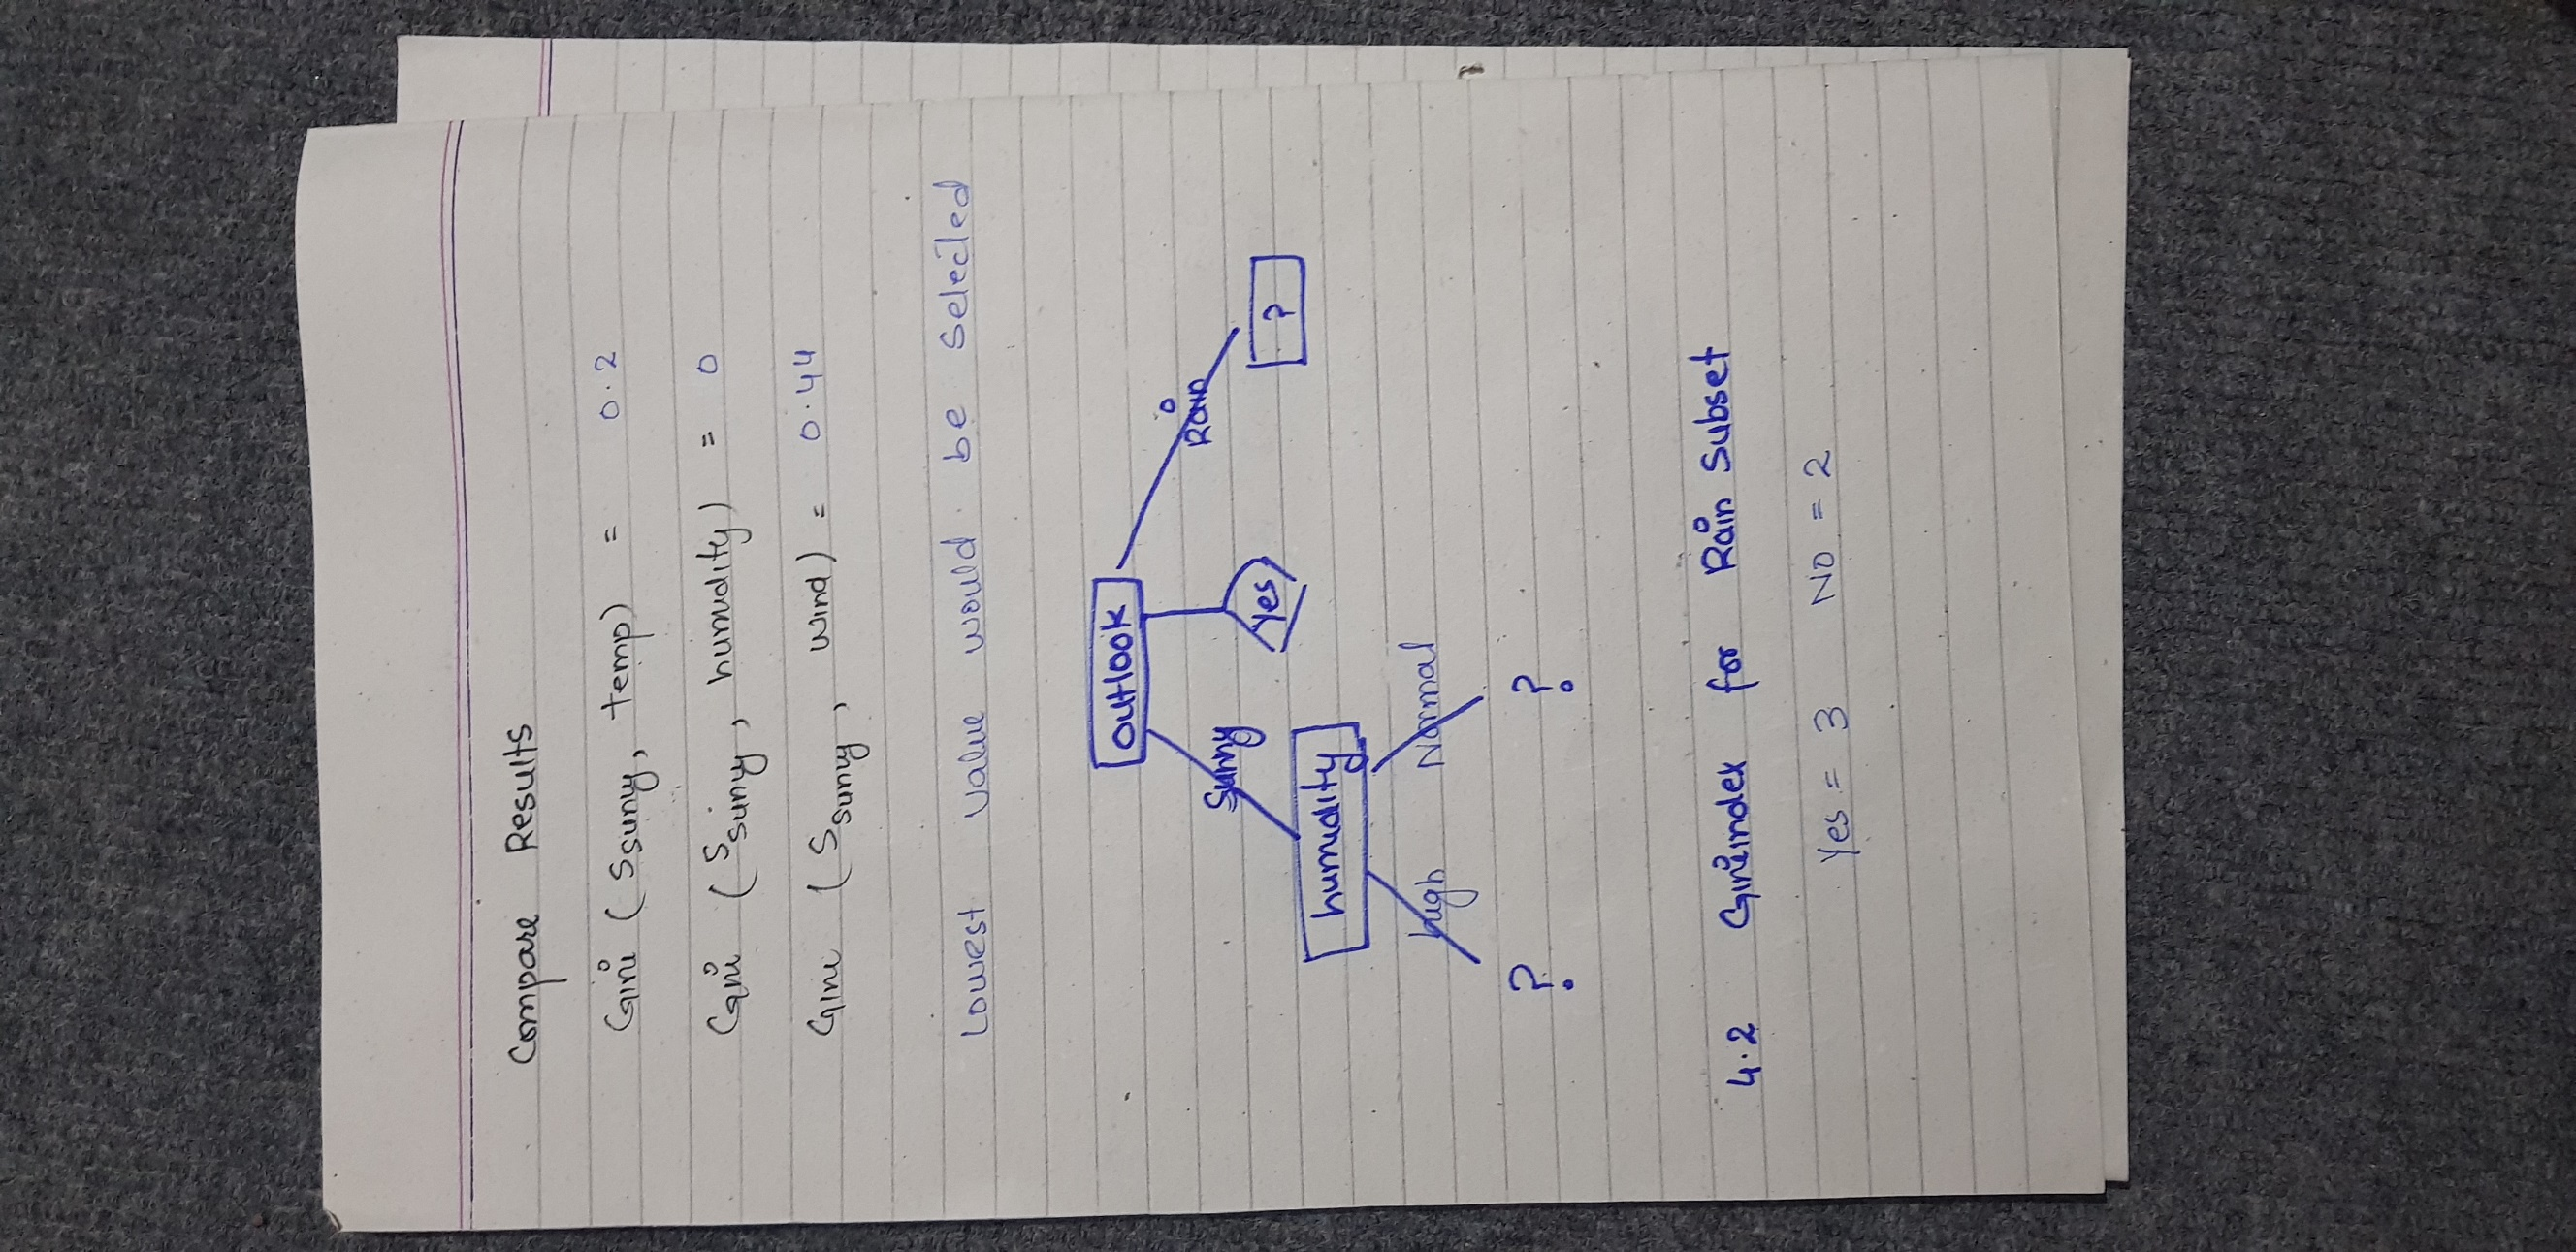 Compare Results
Gini (Ssunny, temp) = 0.2
Gini (Ssunny, humidity) = 0
Gini (Ssunny, wind) = 0.44
Lowest value would be selected
Outlook
Sunny
Rain
Yes
?
humidity
high
Normal
? ?
4.2 Giniindex for Rain Subset
Yes = 3 NO = 2